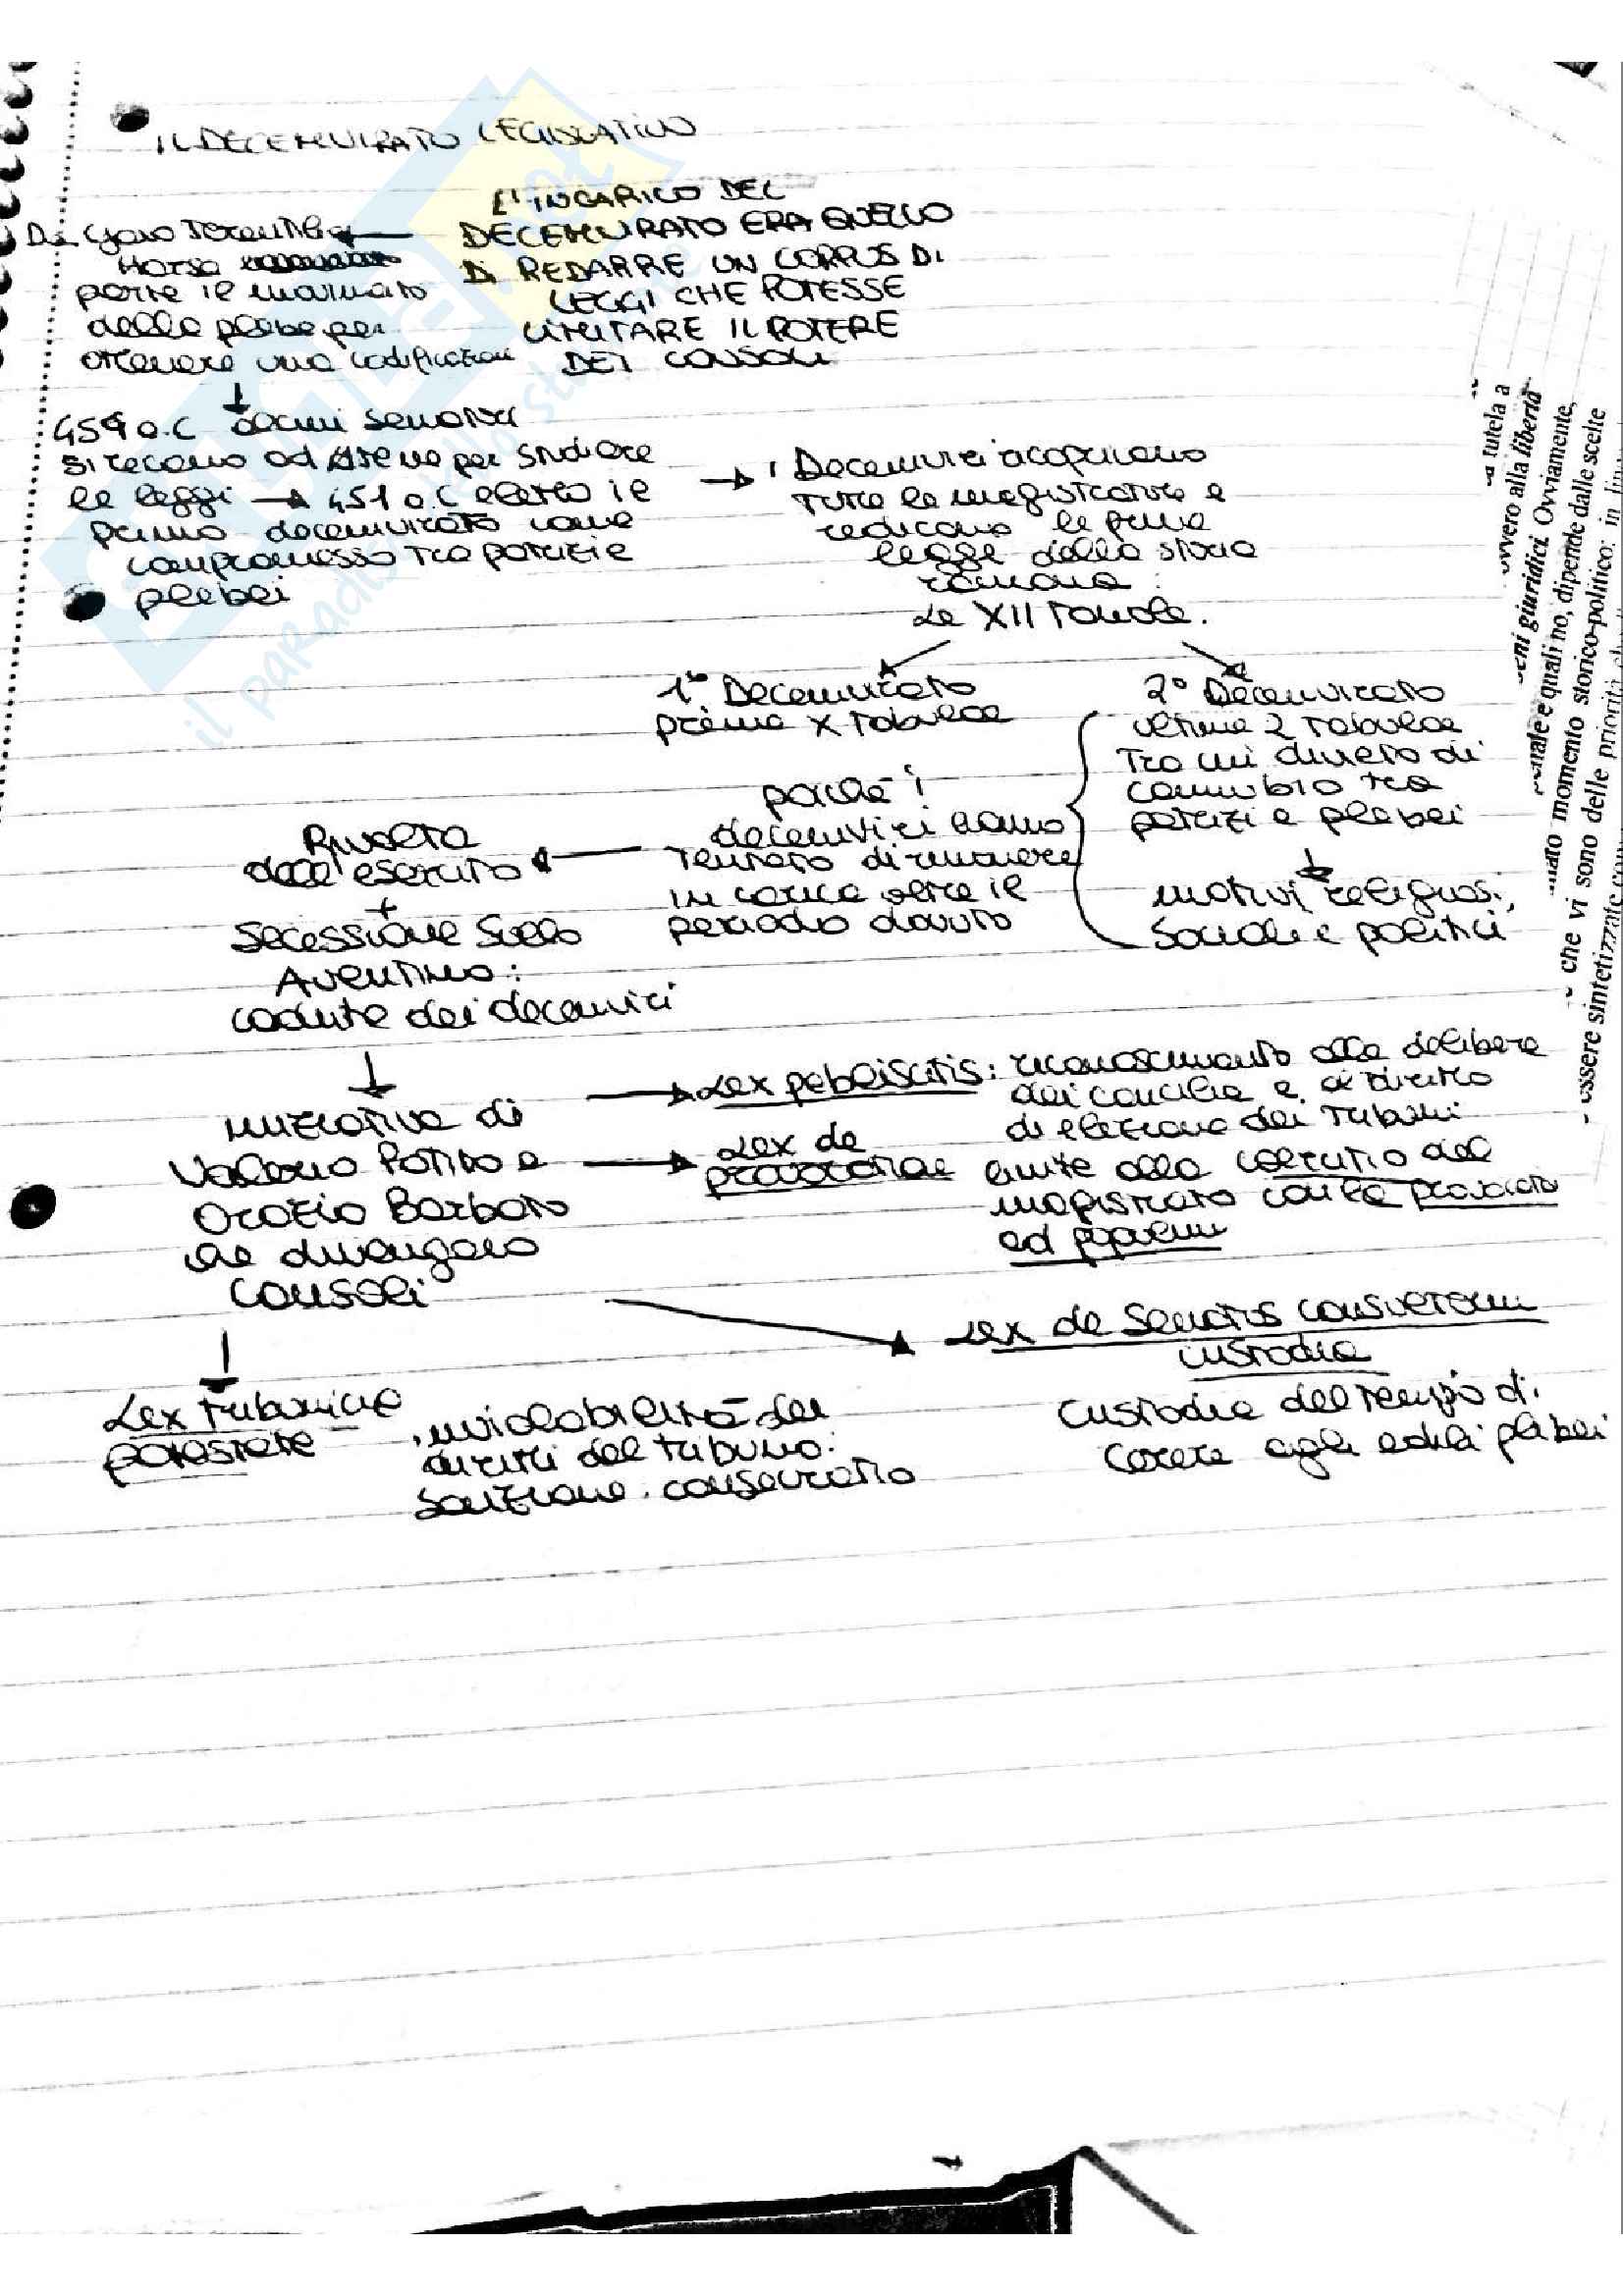 IL DECEMVIRATO LEGISLATIVO
L'INCARICO DEL
DECEMVIRATO ERA QUELLO
DI REDARRE UN CORPUS DI
LEGGI CHE POTESSE
LIMITARE IL POTERE
DEI CONSOLI
Da Gaio Terentilio
Harsa
parte il
della plebe per
ottenere una codificazion
454 a.C alcuni senatori
si recano ad Atene per studiare
le leggi → 451 a.C eletto il
primo decemvirato come
compromesso tra patrizi e
plebei
→ i Decemviri ricoprivano
tutte le magistrature e
redigono le prime
legge della storia
romana:
Le XII Tavole.
1° Decemvirato
prime X tabulae
2° Decemvirato
ultime 2 tabulae
tra cui divieto di
connubio tra
patrizi e plebei
motivi religiosi,
sociali e politici
poiché i
decemviri hanno
tentato di rimanere
in carica oltre il
periodo dovuto
Rivolta
dell'esercito
+
Secessione sullo
Aventino:
caduta dei decemviri
iniziativa di
Valerio Potito e
Orazio Barbato
che divengono
consoli
→ Lex pebliscitis: riconoscimento alle delibere
dei concilia e al diritto
di elezione dei tribuni
→ Lex de
provocatione
limite alla coercitio del
magistrato con la provocatio
ad populum
Lex de senatus consultorum
custodia
custodia del tempio di
Cerere agli edili plebei
Lex tribunicia
potestate
inviolabilità dei
diritti del tribuno:
sanzione: consecratio
a tutela a
ovvero alla libertà
beni giuridici. Ovviamente,
penale e quali no, dipende dalle scelte
momento storico-politico: in
che vi sono delle priorità
essere sintetizzate
il paradiso dello studente